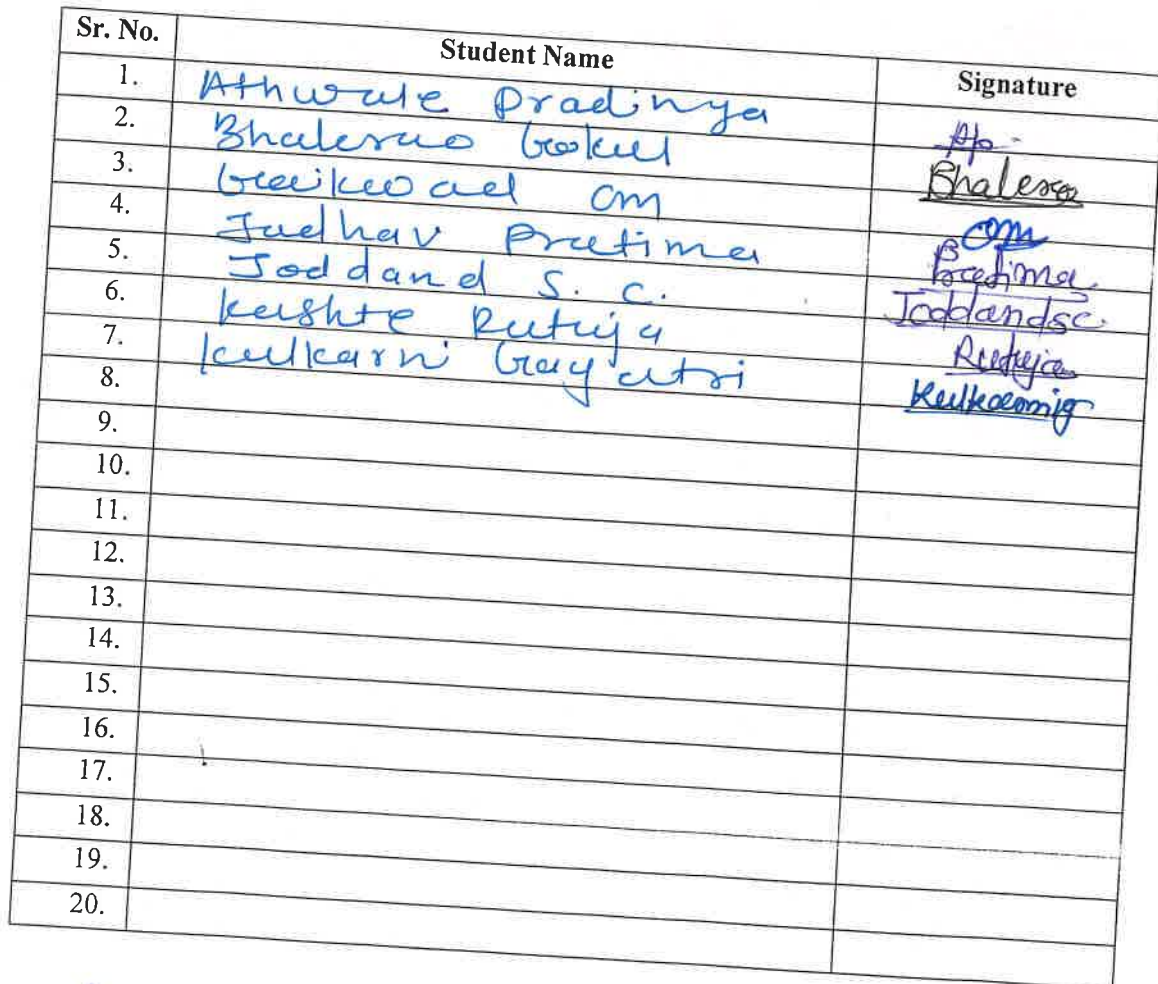 Sr. No. Student Name Signature
1. Athwale Pradinya Ap
2. Bhalerao Gokul Bhalerao
3. Gaikwad Om Om
4. Jadhav Pratima Pratima
5. Joddand S. C. Joddandsc.
6. Kashte Rutuja Rutuja
7. Kulkarni Gayatri Kulkarnig
8.
9.
10.
11.
12.
13.
14.
15.
16.
17.
18.
19.
20.